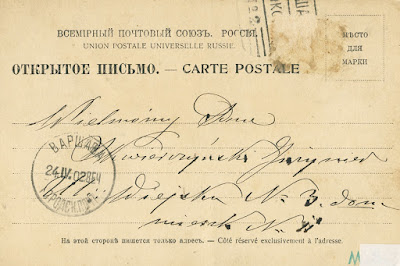 ВСЕМІРНЫЙ ПОЧТОВЫЙ СОЮЗЪ. РОССІЯ.
UNION POSTALE UNIVERSELLE RUSSIE.
МѢСТО
ДЛЯ
МАРКИ
ОТКРЫТОЕ ПИСЬМО. — CARTE POSTALE
Wielmożny Pan
ВАРШАВА
24.IV.02
Wiejska № 3. dom
№ 11
На этой сторонѣ пишется только адресъ. — Côté réservé exclusivement à l'adresse.